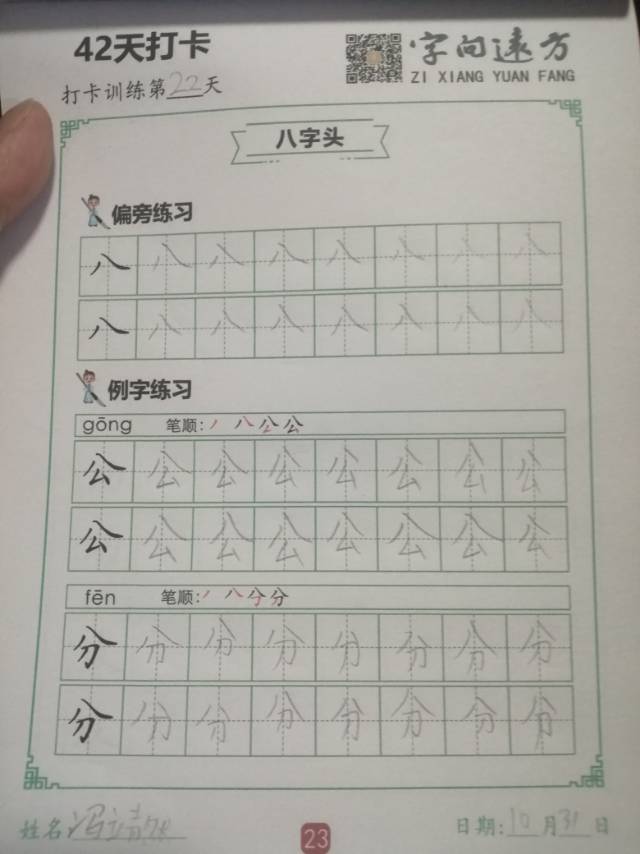 42天打卡
字向速方
ZI XIANG YUAN FANG
打卡训练第22天
八字头
偏旁练习
八 八 八 八 八 八 八 八
八 八 八 八 八 八 八 八
例字练习
gōng 笔顺: 丿 八 公 公
公 公 公 公 公 公 公 公
公 公 公 公 公 公 公 公
fēn 笔顺: 丿 八 分 分
分 分 分 分 分 分 分 分
分 分 分 分 分 分 分 分
姓名 冯
23
日期: 10月31日